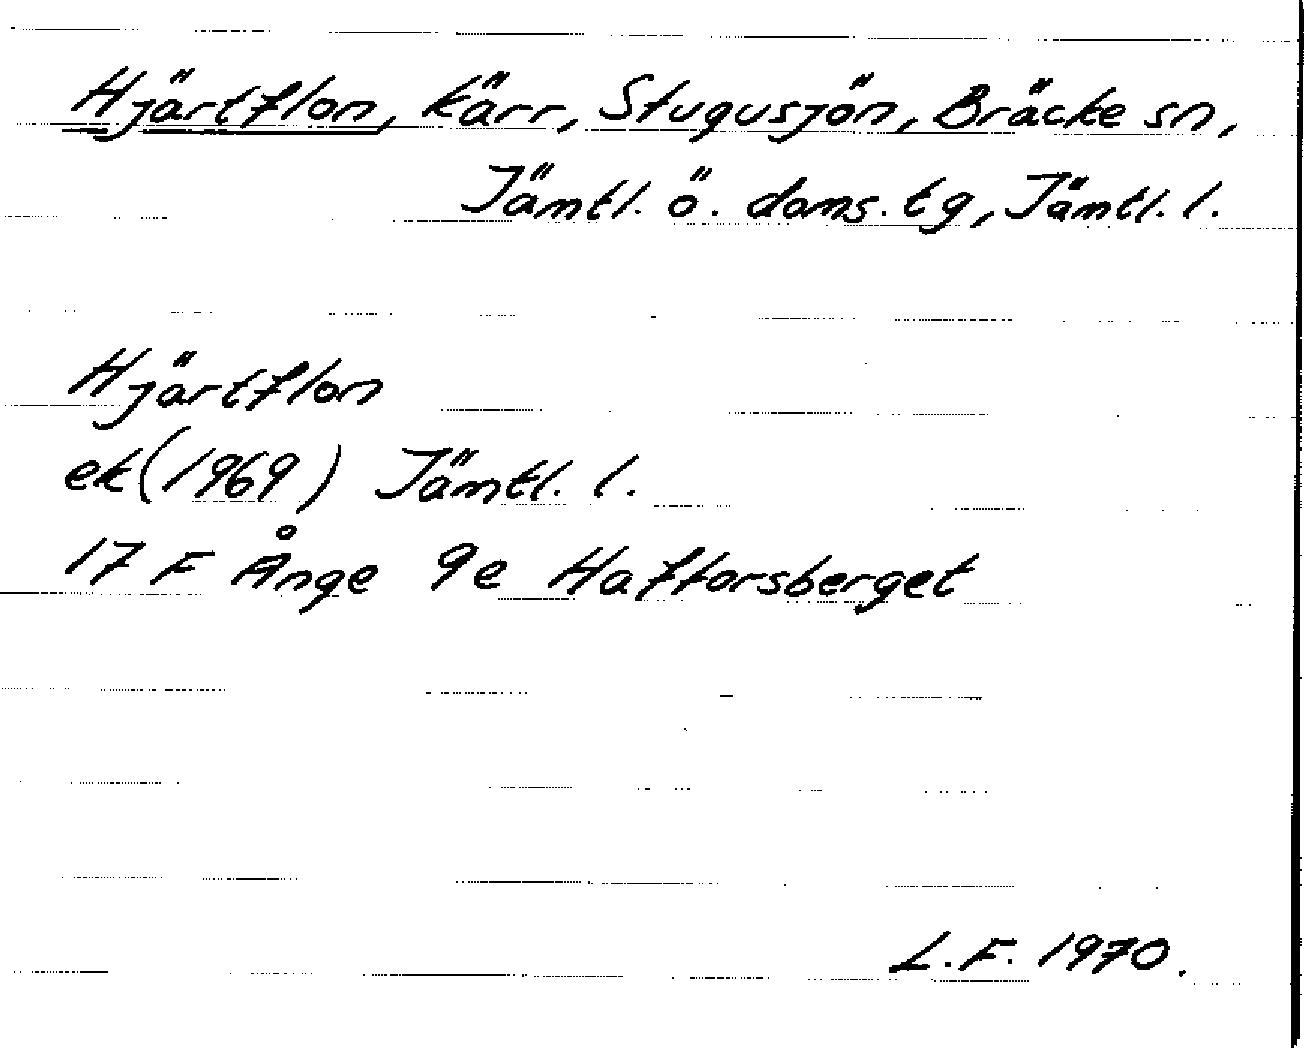 Hjärtflon, kärr, Stugusjön, Bräcke sn,
Jämtl. ö. doms. tg, Jämtl. l.
Hjärtflon
ek (1969) Jämtl. l.
17 F Ånge 9e Haftorsberget
L.F. 1970.